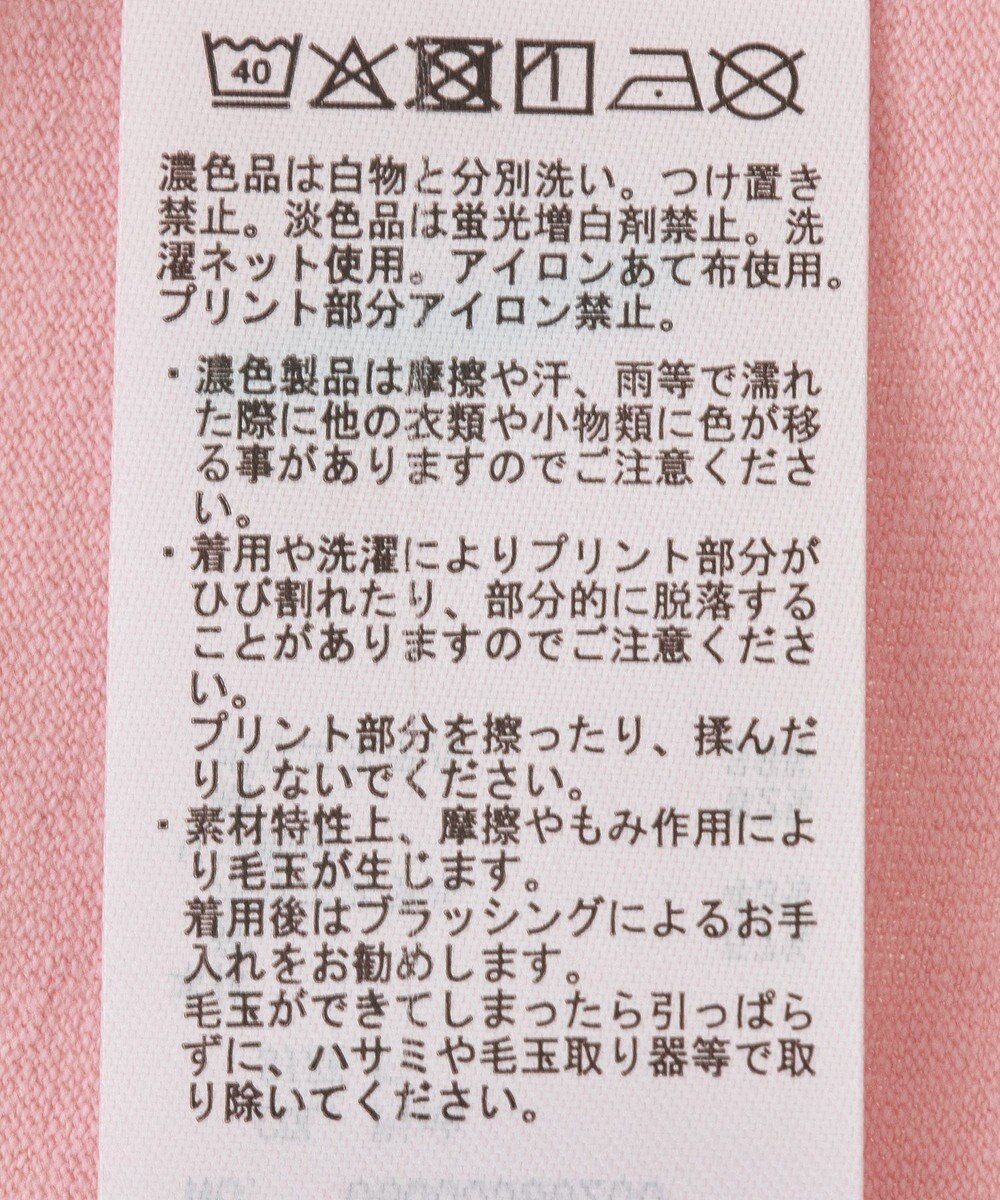 40
濃色品は白物と分別洗い。つけ置き
禁止。淡色品は蛍光増白剤禁止。洗
濯ネット使用。アイロンあて布使用。
プリント部分アイロン禁止。
・濃色製品は摩擦や汗、雨等で濡れ
た際に他の衣類や小物類に色が移
る事がありますのでご注意くださ
い。
・着用や洗濯によりプリント部分が
ひび割れたり、部分的に脱落する
ことがありますのでご注意くださ
い。
プリント部分を擦ったり、揉んだ
りしないでください。
・素材特性上、摩擦やもみ作用によ
り毛玉が生じます。
着用後はブラッシングによるお手
入れをお勧めします。
毛玉ができてしまったら引っぱら
ずに、ハサミや毛玉取り器等で取
り除いてください。